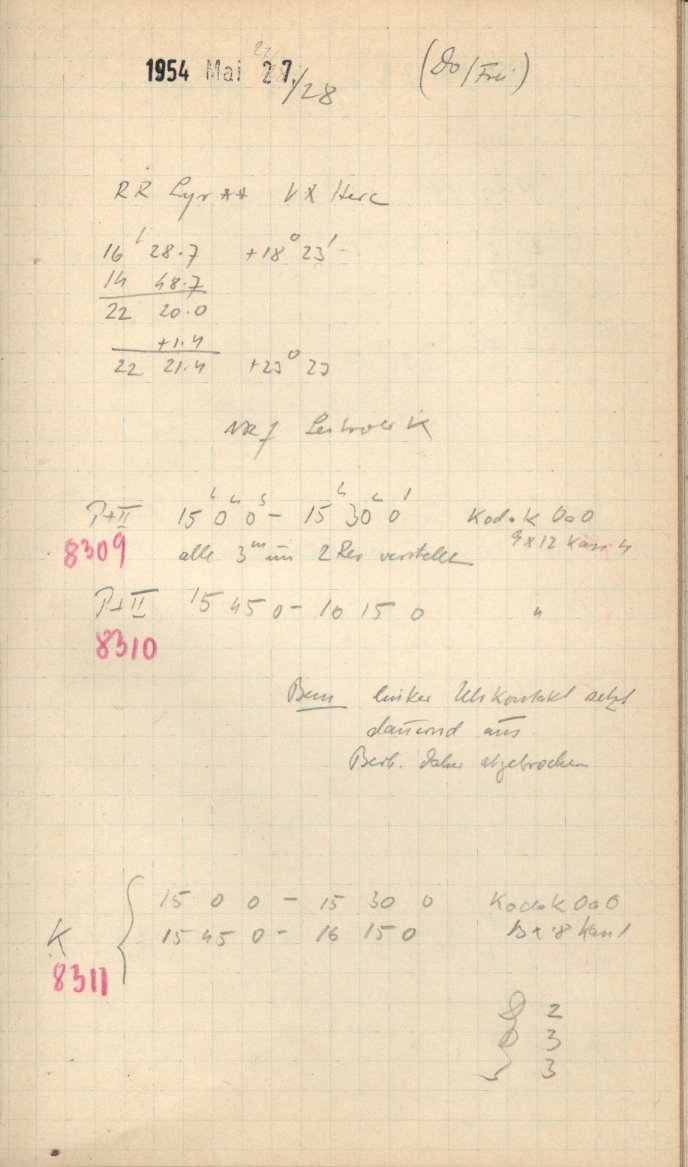 1954 Mai 27./28 (Do/Frei)
RR Lyr ** VX Herc
16 28.7 +18° 23'
14 48.7
22 20.0
+1.4
22 21.4 +23° 23
P+II 15 0 0 - 15 30 0 Kodak OaO
9x12 Kass 4
8309 alle 3m um 2 Rev verstellt
P+II 15 45 0 - 10 15 0 "
8310
Bem linker Uhrkontakt setzt
dauernd aus.
Beob. daher abgebrochen
15 0 0 - 15 30 0 Kodak OaO
K 15 45 0 - 16 15 0
8311
2
3
3